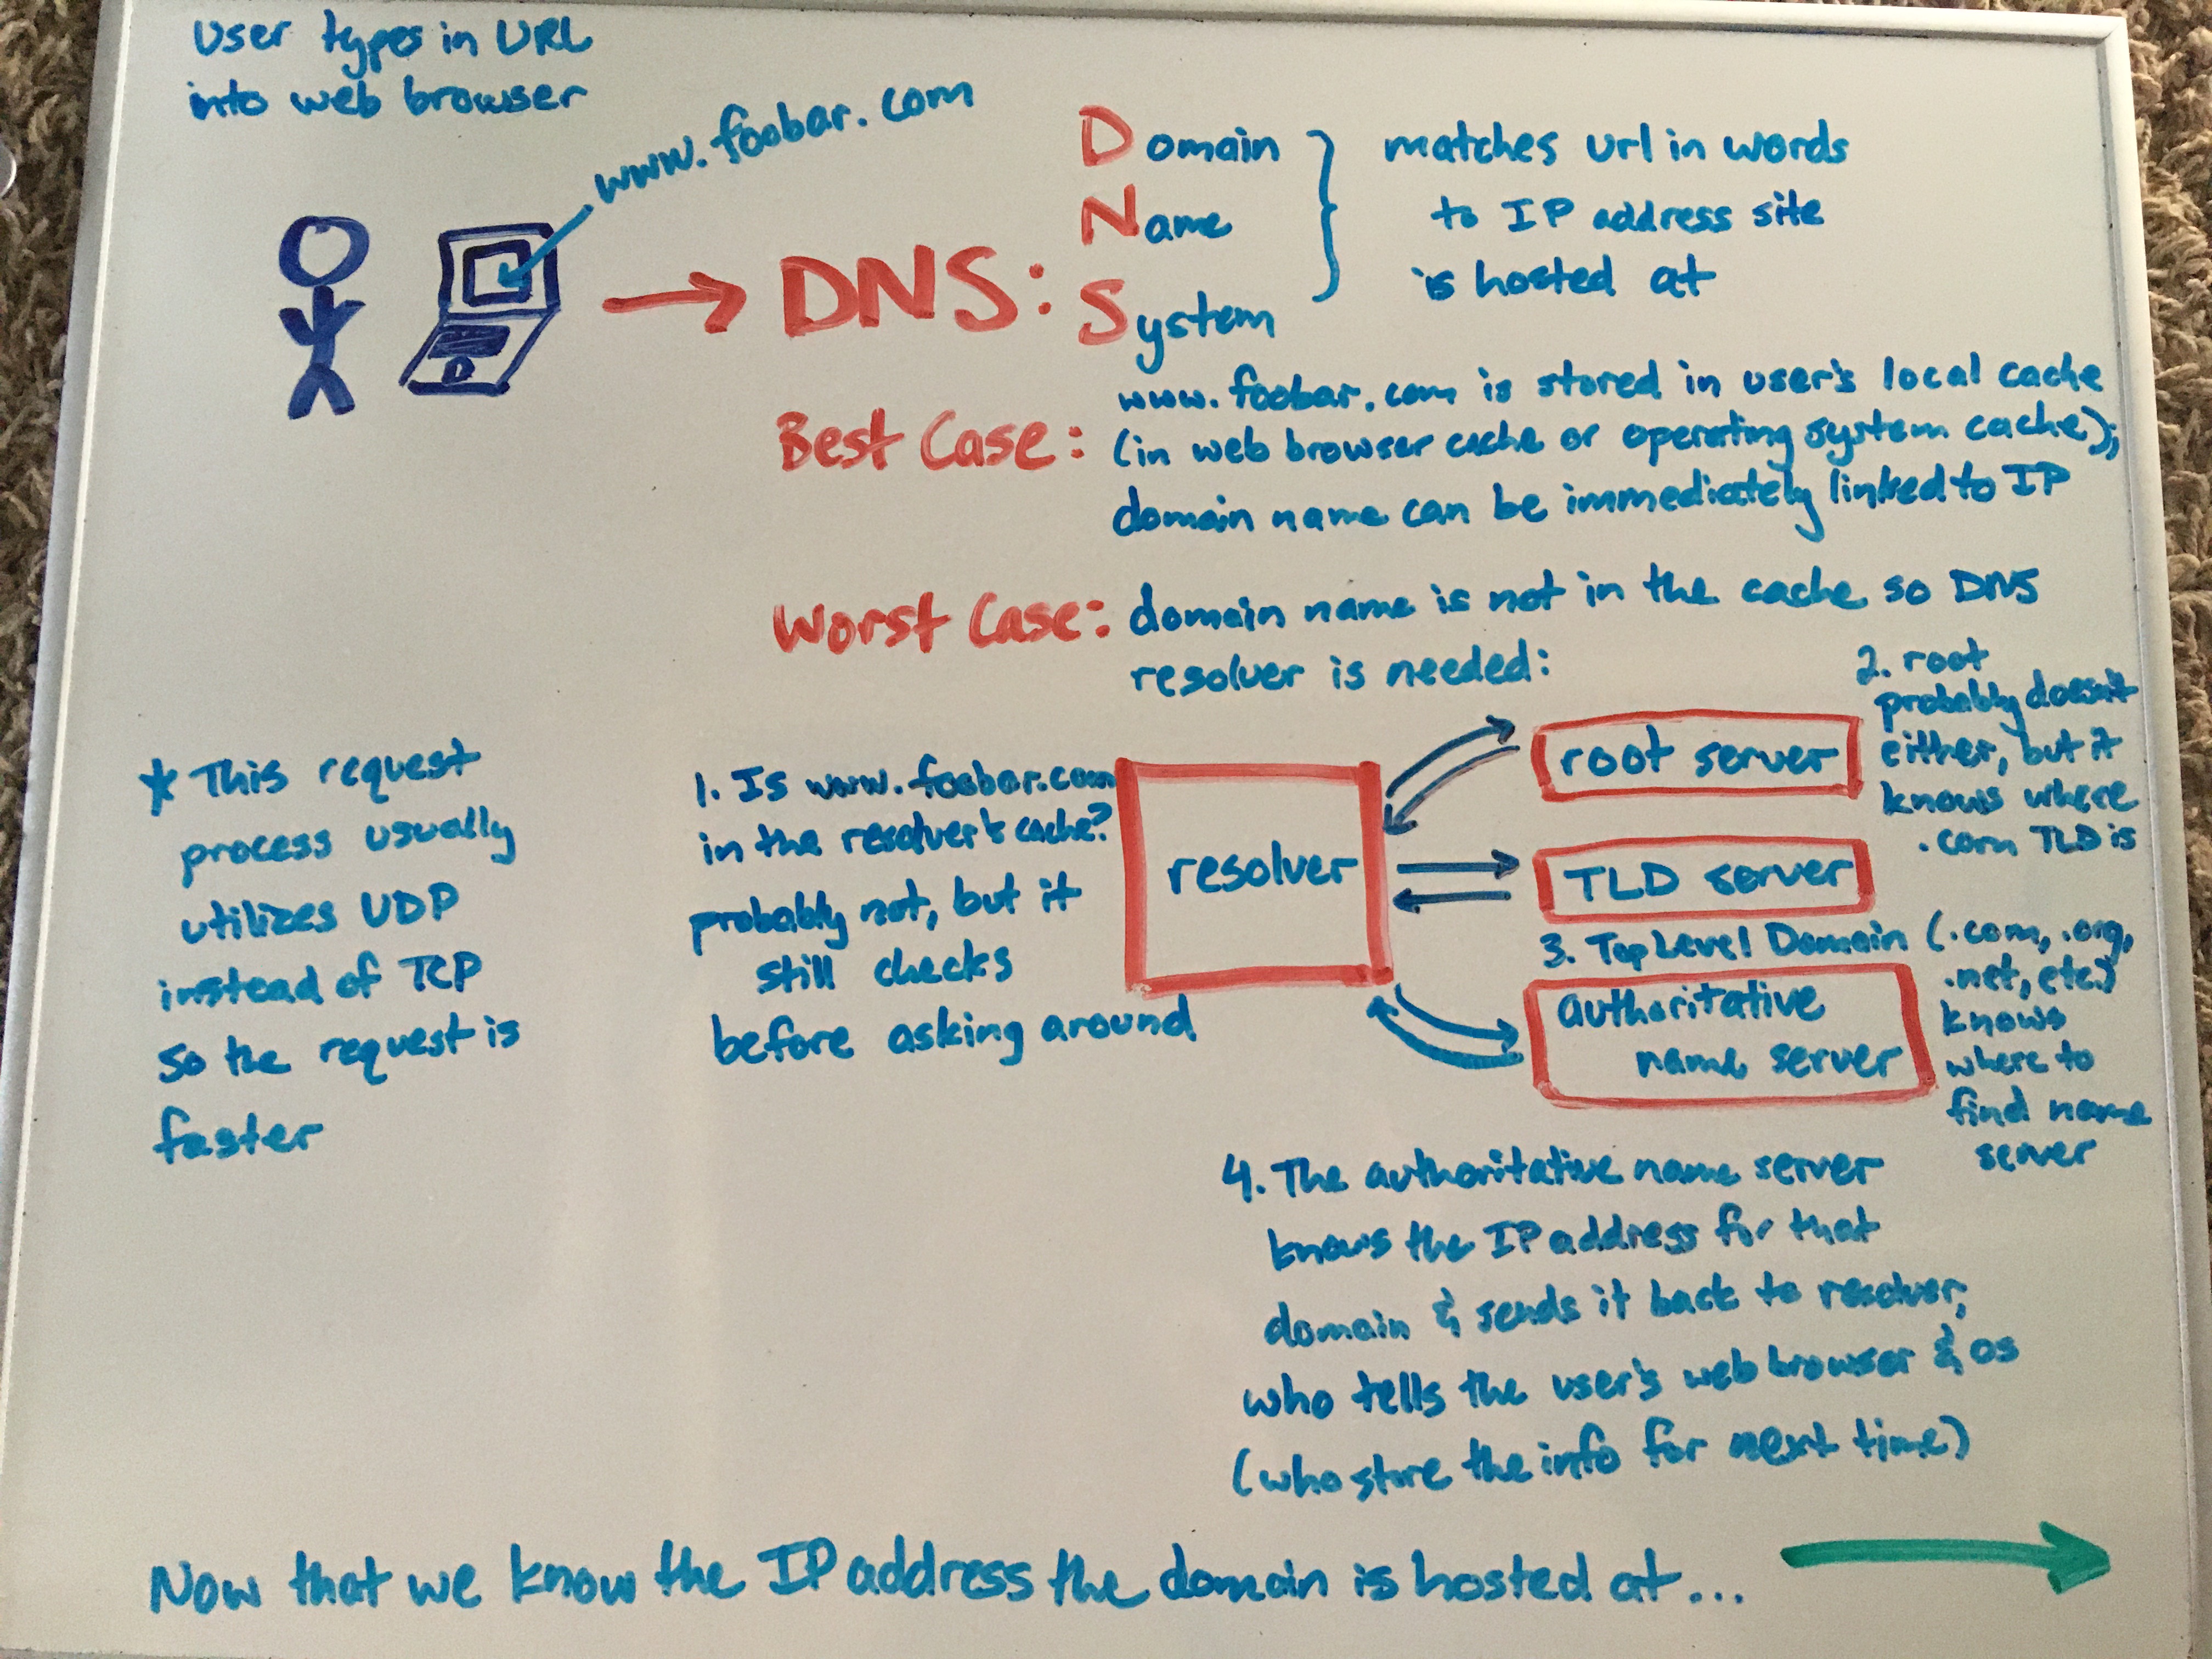 User types in URL
into web browser
www.foobar.com
DNS:
Domain
Name
System
matches url in words
to IP address site
is hosted at
Best Case:
www.foobar.com is stored in user's local cache
(in web browser cache or operating system cache);
domain name can be immediately linked to IP
Worst Case:
domain name is not in the cache so DNS
resolver is needed:
* This request
process usually
utilizes UDP
instead of TCP
so the request is
faster
1. Is www.foobar.com
in the resolver's cache?
probably not, but it
still checks
before asking around
resolver
root server
2. root
probably doesn't
either, but it
knows where
.com TLD is
TLD server
3. Top Level Domain (.com, .org,
.net, etc.)
knows
where to
find name
server
authoritative
name server
4. The authoritative name server
knows the IP address for that
domain & sends it back to resolver,
who tells the user's web browser & OS
(who store the info for next time)
Now that we know the IP address the domain is hosted at...